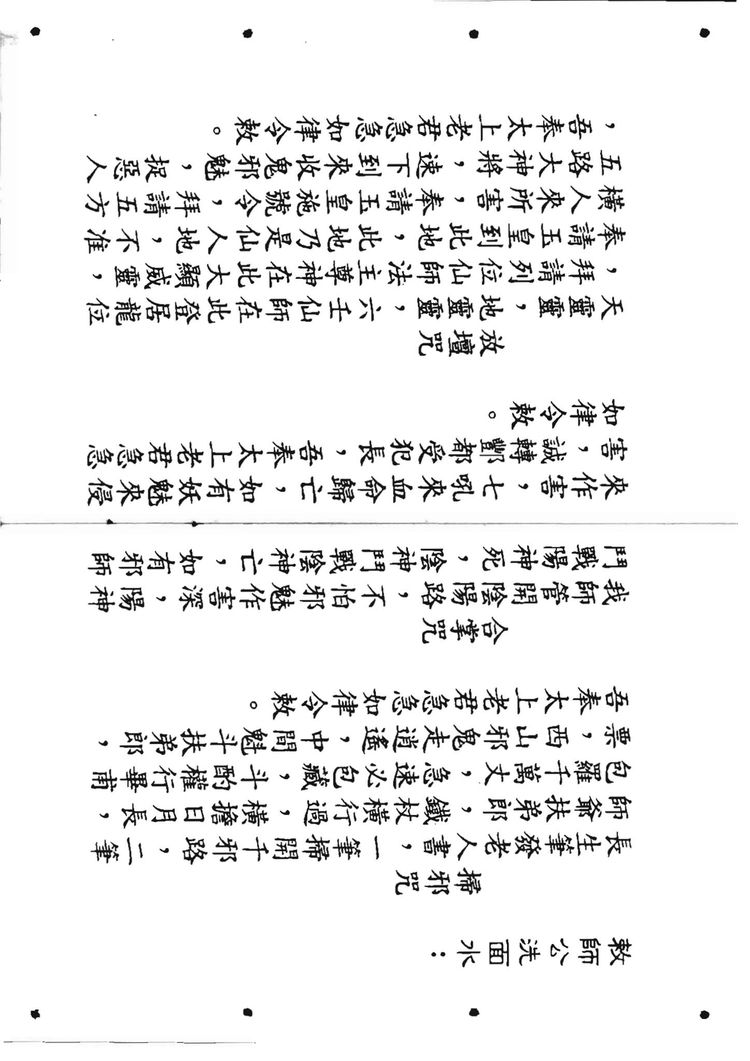 敕師公洗面水：
掃邪咒
長生筆發老人書，一筆掃開千邪路，二筆
師爺扶弟郎，鐵杖橫行過，橫擔日月長，
包羅千萬丈，急速必包藏，斗酌權行畢甫
票，西山邪鬼走逍遙，中間魁斗扶弟郎，
吾奉太上老君急急如律令敕。
合掌咒
我師管開陰陽路，不怕邪魅作害深，陽神
鬥戰陽神死，陰神鬥戰陰神亡，如有邪師
來作害，七吼來血命歸亡，如有妖魅來侵
害，誠轉酆都受犯長，吾奉太上老君急急
如律令敕。
放壇咒
天靈靈，地靈靈，六壬仙師在此登居龍位
，拜請列位仙師法主尊神在此大顯威靈，
奉請玉皇到此地，此地乃是仙人地，不准
橫人來所害，奉請玉皇施號令，拜請五方
五路大神將，速下到來收鬼邪魅，捉惡人
，吾奉太上老君急急如律令敕。